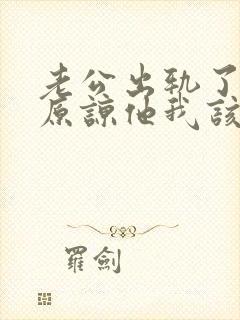 老公出轨了
原谅他我该
羅劍